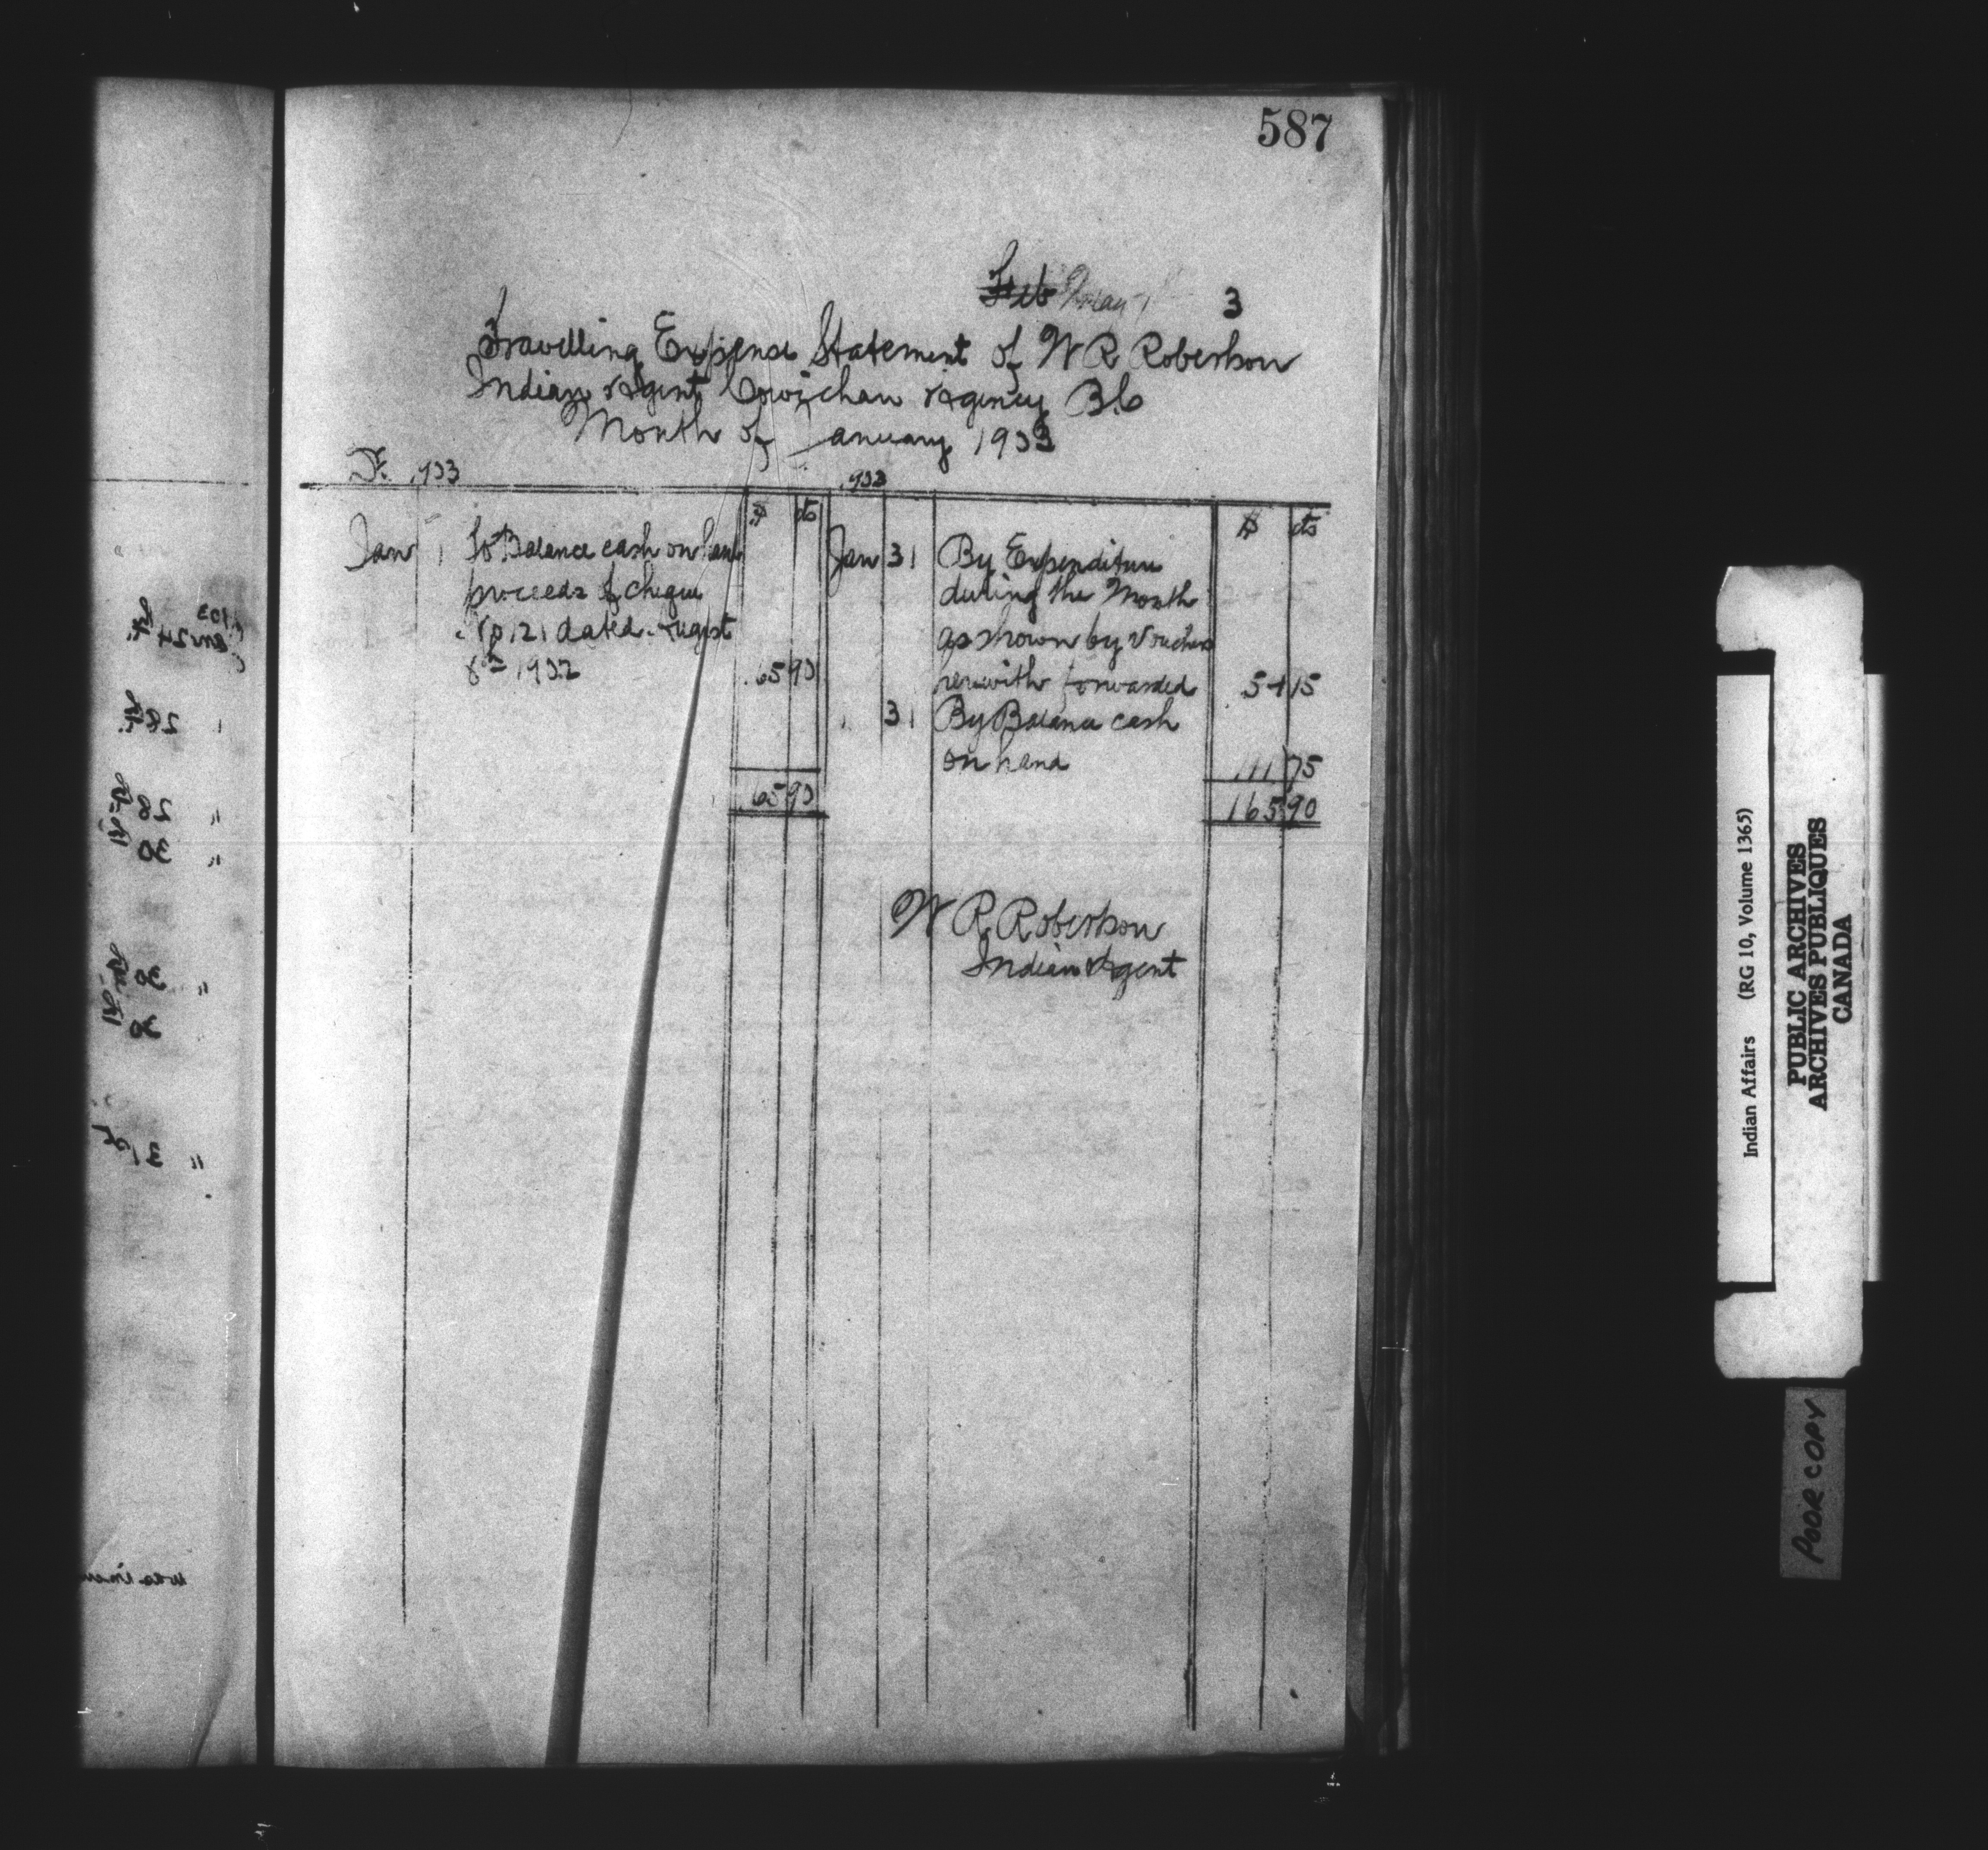 587
Feb May 1 3
Travelling Expense Statement of W R Robertson
Indian Agent Cowichan Agency B.C
Month of January 1903
Dr. 1903 1903
$ cts $ cts
Jan 1 To Balance cash on hand
proceeds of cheque
No 121 dated August
8th 1902 165 90
165 90
Jan 31 By Expenditure
during the Month
as shown by Vouchers
herewith forwarded 54 15
" 31 By Balance cash
on hand 111 75
165 90
W R Robertson
Indian Agent
Indian Affairs (RG 10, Volume 1365)
PUBLIC ARCHIVES
ARCHIVES PUBLIQUES
CANADA
POOR COPY